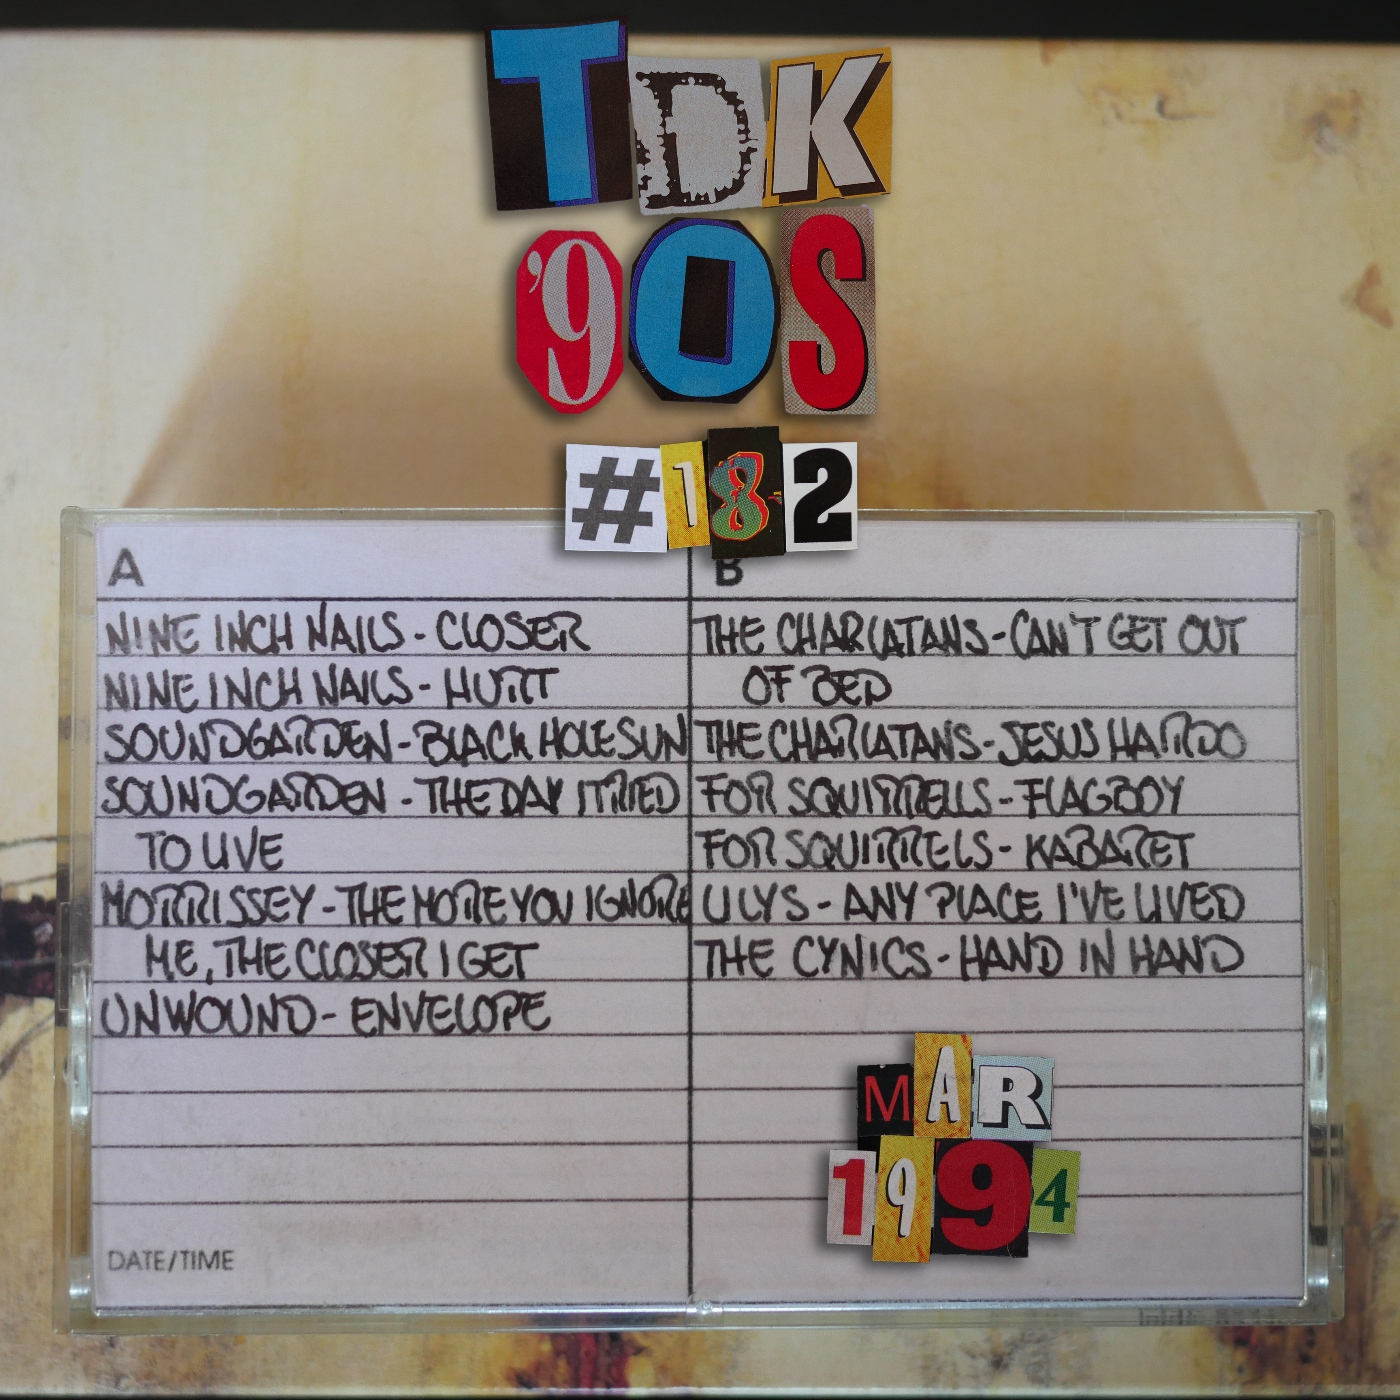 TDK
'90S
#182
A
NINE INCH NAILS - CLOSER
NINE INCH NAILS - HURT
SOUNDGARDEN - BLACK HOLE SUN
SOUNDGARDEN - THE DAY I TRIED
TO LIVE
MORRISSEY - THE MORE YOU IGNORE
ME, THE CLOSER I GET
UNWOUND - ENVELOPE
DATE/TIME
B
THE CHARLATANS - CAN'T GET OUT
OF BED
THE CHARLATANS - JESUS HAIRDO
FOR SQUIRRELLS - FLAGBOY
FOR SQUIRRELS - KABARET
LILYS - ANY PLACE I'VE LIVED
THE CYNICS - HAND IN HAND
MAR
1994